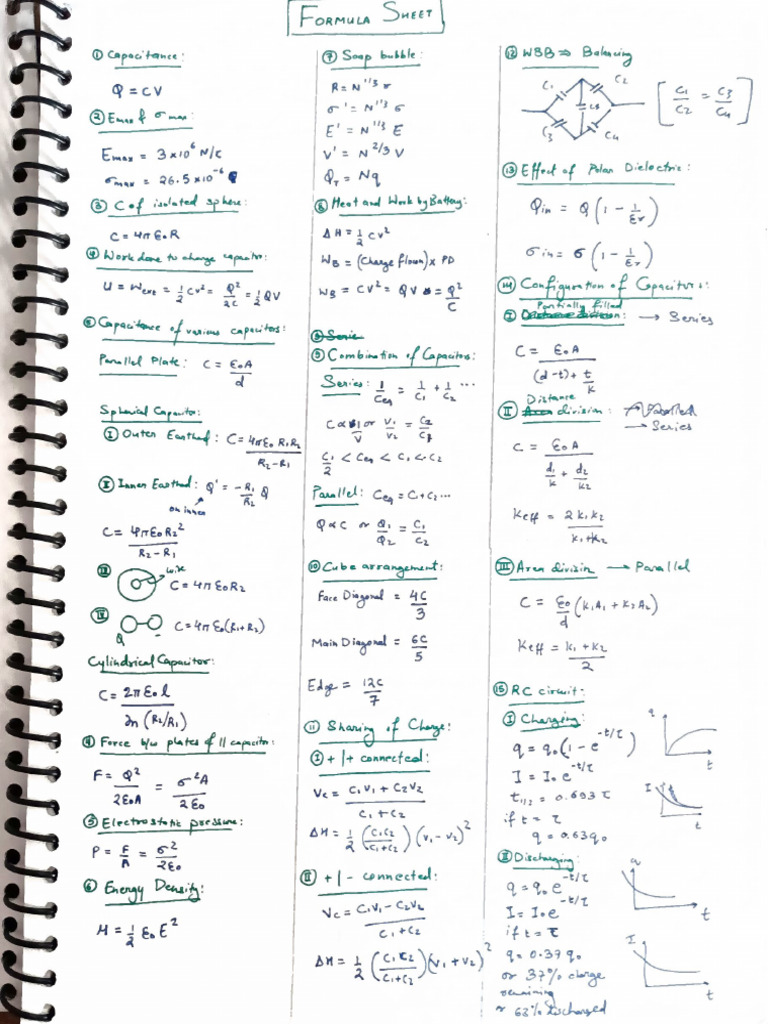 FORMULA SHEET
① Capacitance:
Q = CV
② Emax & σ max:
Emax = 3×10⁶ N/C
σmax = 26.5×10⁻⁶ C
③ C of isolated sphere:
C = 4πε₀R
④ Work done to charge capacitor:
U = Wext = 1/2 CV² = Q²/2C = 1/2 QV
⑤ Capacitance of various capacitors:
Parallel Plate: C = ε₀A/d
Spherical Capacitor:
Ⓘ Outer Earthed: C = 4πε₀R₁R₂/R₂-R₁
Ⓘⓘ Inner Earthed: Q' = -R₁/R₂ Q
on inner
C = 4πε₀R₂²/R₂-R₁
III wire C = 4πε₀R₂
IV Q C = 4πε₀(R₁+R₂)
Cylindrical Capacitor:
C = 2πε₀l/ln(R₂/R₁)
④ Force b/w plates of || capacitor:
F = Q²/2ε₀A = σ²A/2ε₀
⑤ Electrostatic pressure:
P = F/A = σ²/2ε₀
⑥ Energy Density:
M = 1/2 ε₀E²
⑦ Soap bubble:
R = N^1/3 r
σ' = N^1/3 σ
E' = N^1/3 E
V' = N^2/3 V
Q_T = Nq
⑧ Heat and Work by Battery:
ΔH = 1/2 CV²
W_B = (Charge flown) × PD
W_B = CV² = QV = Q²/C
⑨ Serie
⑨ Combination of Capacitors:
Series: 1/Ceq = 1/C₁ + 1/C₂ ...
C ∝ 1/V or V₁/V₂ = C₂/C₁
C₁/2 < Ceq < C₁ < C₂
Parallel: Ceq = C₁+C₂...
Q ∝ C or Q₁/Q₂ = C₁/C₂
⑩ Cube arrangement:
Face Diagonal = 4C/3
Main Diagonal = 6C/5
Edge = 12C/7
⑪ Sharing of Charge:
Ⓘ +|+ connected:
Vc = C₁V₁+C₂V₂/C₁+C₂
ΔH = 1/2 (C₁C₂/C₁+C₂)(V₁-V₂)²
II +|- connected:
Vc = C₁V₁-C₂V₂/C₁+C₂
ΔH = 1/2 (C₁C₂/C₁+C₂)(V₁+V₂)²
⑫ WSB ⇒ Balancing
C₁ C₂ C₅ C₃ C₄
[C₁/C₂ = C₃/C₄]
⑬ Effect of Polar Dielectric:
Qin = Q(1 - 1/εr)
σin = σ(1 - 1/εr)
⑭ Configuration of Capacitors:
Partially filled
I Distance division: → Series
C = ε₀A/(d-t)+t/k
Distance
II Area division: Parallel
→ Series
C = ε₀A/d₁/k + d₂/k₂
Keff = 2k₁k₂/k₁+k₂
III Area divisin → Parallel
C = ε₀/d (k₁A₁+k₂A₂)
Keff = k₁+k₂/2
⑮ RC circuit:
I Charging:
q t
q = q₀(1 - e^-t/τ)
I = I₀e^-t/τ
I t
t₁/₂ = 0.693τ
if t = τ
q = 0.63q₀
II Discharging:
q t
q = q₀e^-t/τ
I = I₀e^-t/τ
if t = τ
I t
q = 0.37q₀
or 37% charge
remaining
or 63% discharged